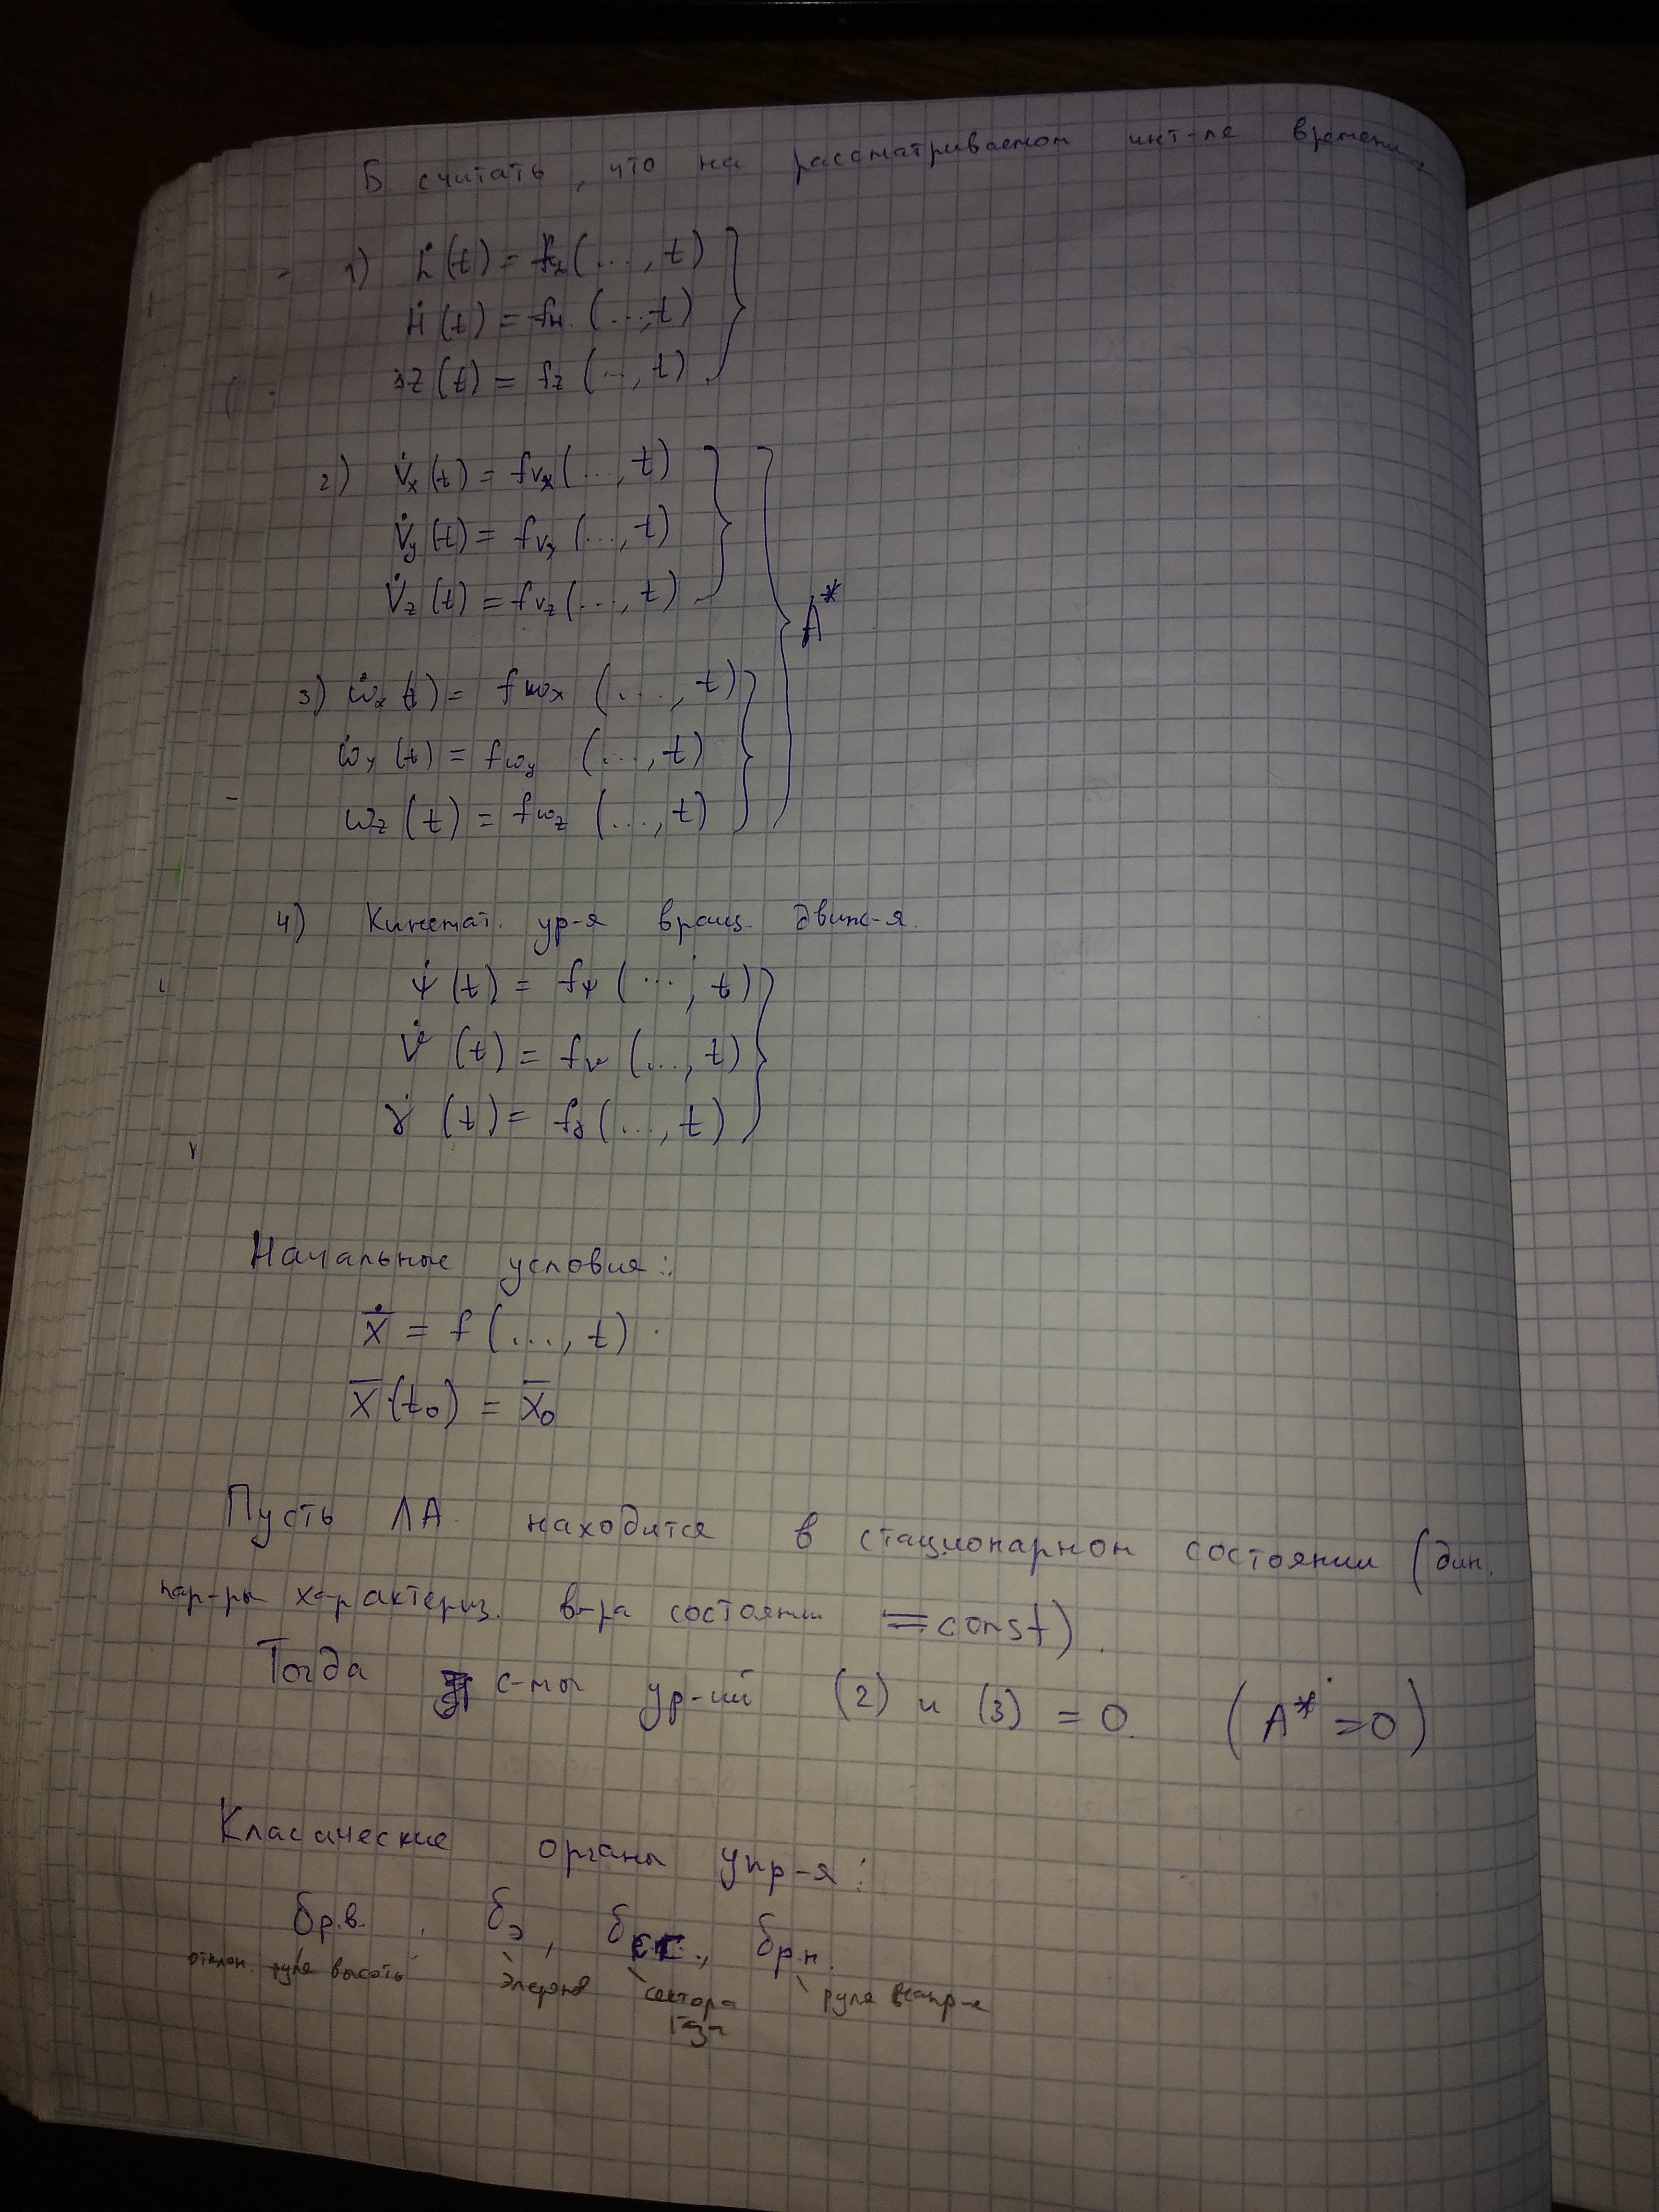 Б. считать, что на рассматриваемом инт-ле времени:
1) L̇(t) = f_L(..., t)
Ḣ(t) = f_H(..., t)
Z(t) = f_Z(..., t)
2) V̇x(t) = f_Vx(..., t)
V̇y(t) = f_Vy(..., t)
V̇z(t) = f_Vz(..., t)
A*
3) ω̇x(t) = f_ωx(..., t)
ω̇y(t) = f_ωy(..., t)
ωz(t) = f_ωz(..., t)
4) Кинемат. ур-я вращ. движ-я.
ψ̇(t) = fψ(..., t)
ϑ̇(t) = fϑ(..., t)
γ̇(t) = fγ(..., t)
Начальные условия:
Ẋ = f(..., t)
X̄(t₀) = X̄₀
Пусть ЛА находится в стационарном состоянии (дин.
пар-ры характериз. в-ра состояни = const).
Тогда с-мы ур-ий (2) и (3) = 0. (A* = 0)
Классические органы упр-я:
δр.в., δэ, δсг., δр.н.
отклон. руля высоты элерона сектора руля напр-я
газа